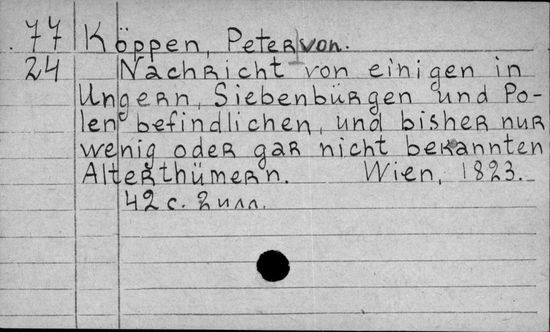 77 Köppen, Peter von.
24 Nachricht von einigen in
Ungern, Siebenbürgen und Po-
len befindlichen, und bisher nur
wenig oder gar nicht bekannten
Alterthümern. Wien, 1823.
42 с. 2 илл.